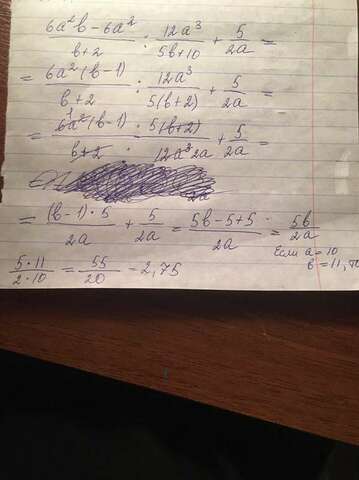 6a²b - 6a² / b+2 : 12a³ / 5b+10 + 5 / 2a =
= 6a²(b-1) / b+2 : 12a³ / 5(b+2) + 5 / 2a =
= 6a²(b-1) / b+2 · 5(b+2) / 12a³ 2a + 5 / 2a =
= (b-1)·5 / 2a + 5 / 2a = 5b-5+5 / 2a = 5b / 2a
Если a=10
b=11,
5·11 / 2·10 = 55 / 20 = 2,75